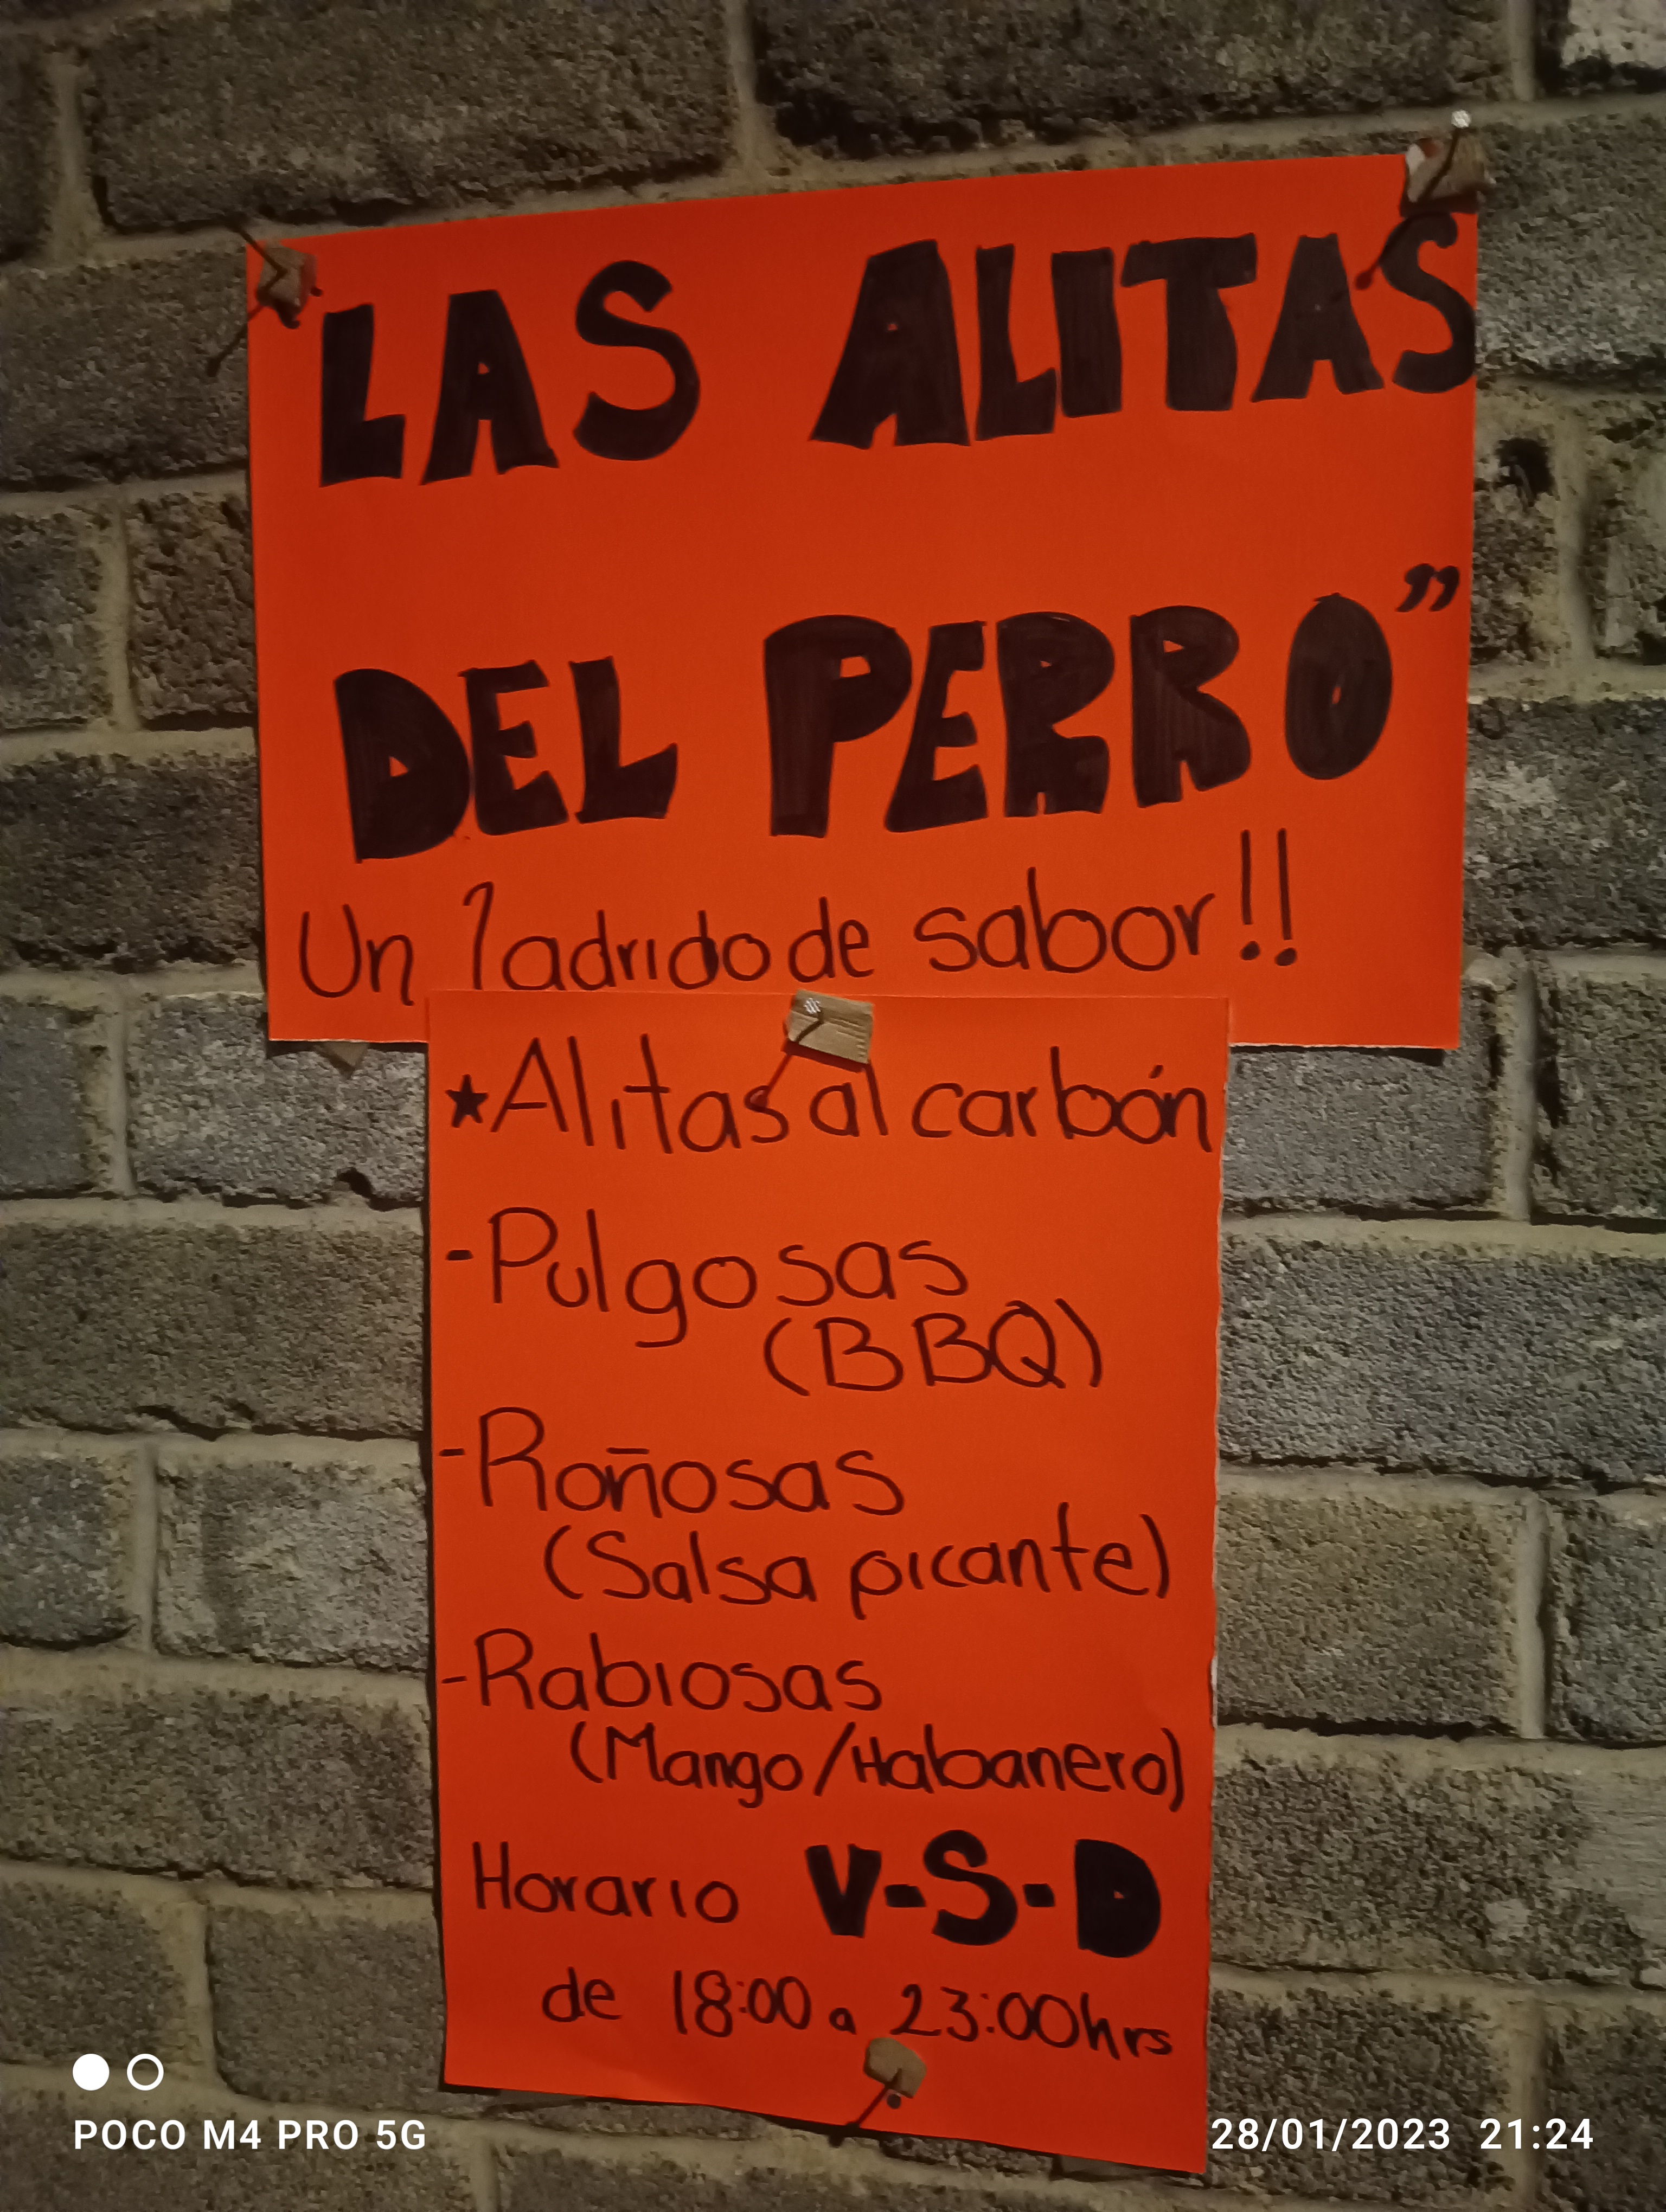 LAS ALITAS
DEL PERRO”
Un ladrido de sabor!!
★Alitas al carbón
-Pulgosas
(BBQ)
-Roñosas
(Salsa picante)
-Rabiosas
(Mango/Habanero)
Horario V-S-D
de 18:00 a 23:00hrs
POCO M4 PRO 5G
28/01/2023 21:24